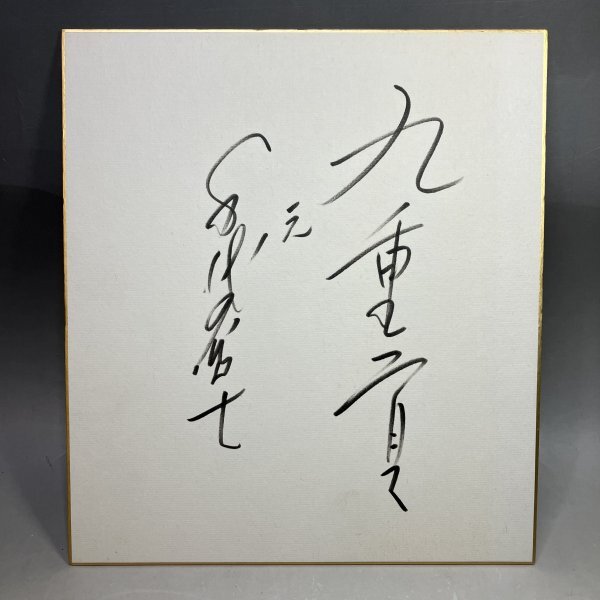 九重貢
元
千代の富士